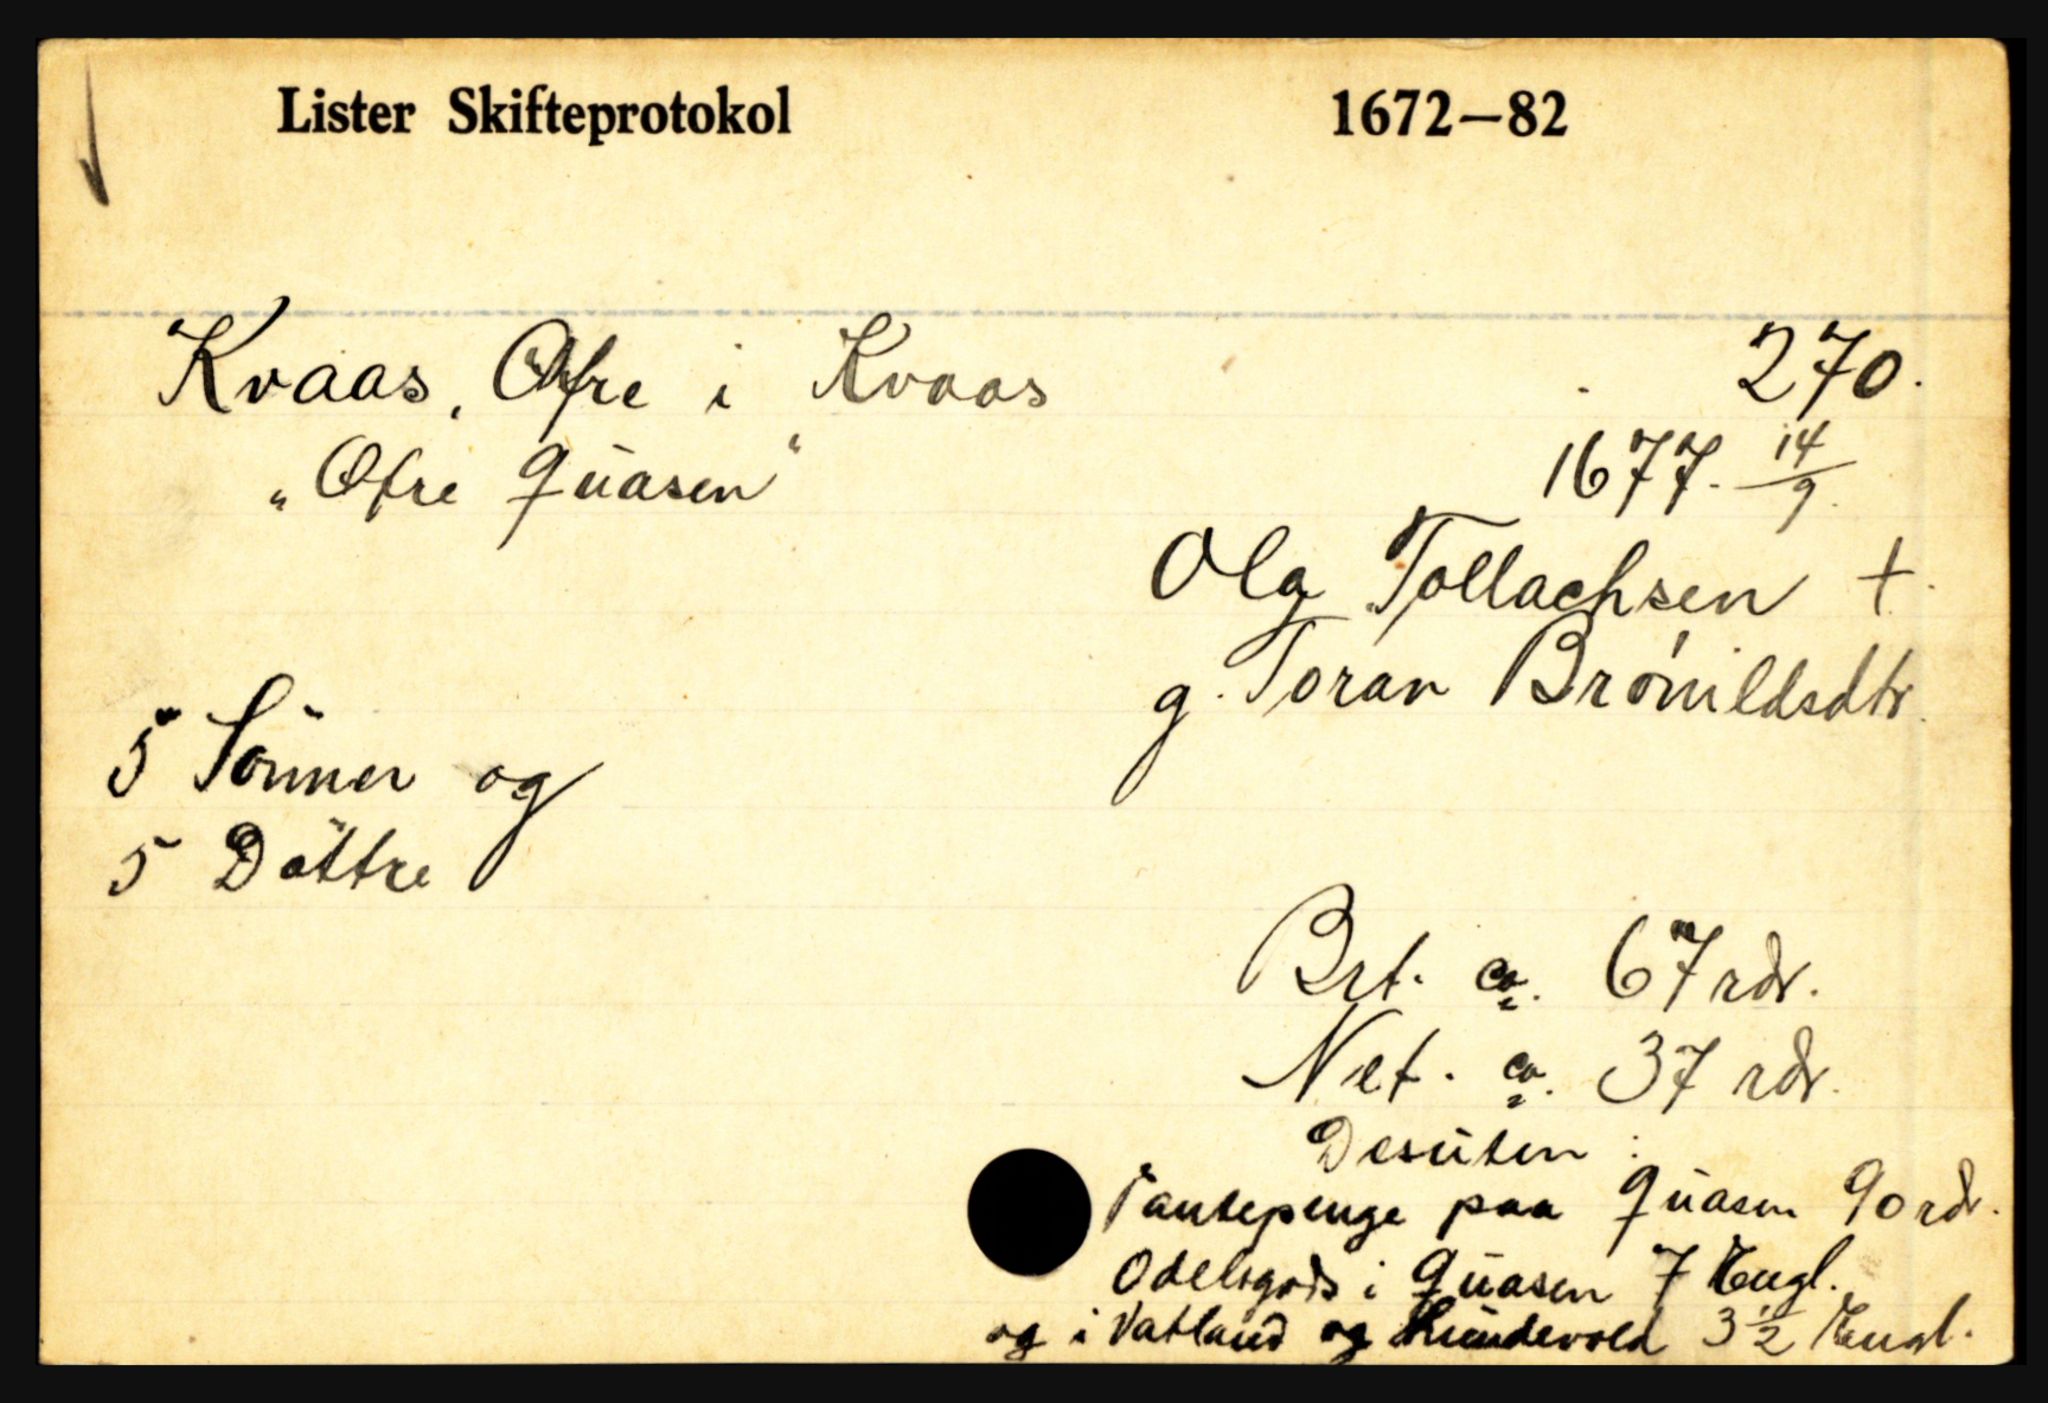 Lister Skifteprotokol 1672—82
Kvaas, Øfre i Kvaas 270.
„Øfre Quasen“ 1677. 14/9.
Ola Tollachsen +
g. Toran Brönildsdtr.
5 Sönner og
5 Döttre
Brt. ca. 67 rdr.
Net. ca. 37 rdr.
Desuten :
Pantepenge paa Quasen 90 rdr.
Odelsgods i Quasen 7 Engl.
og i Vatland og Lundevold 3 1/2 Engl.